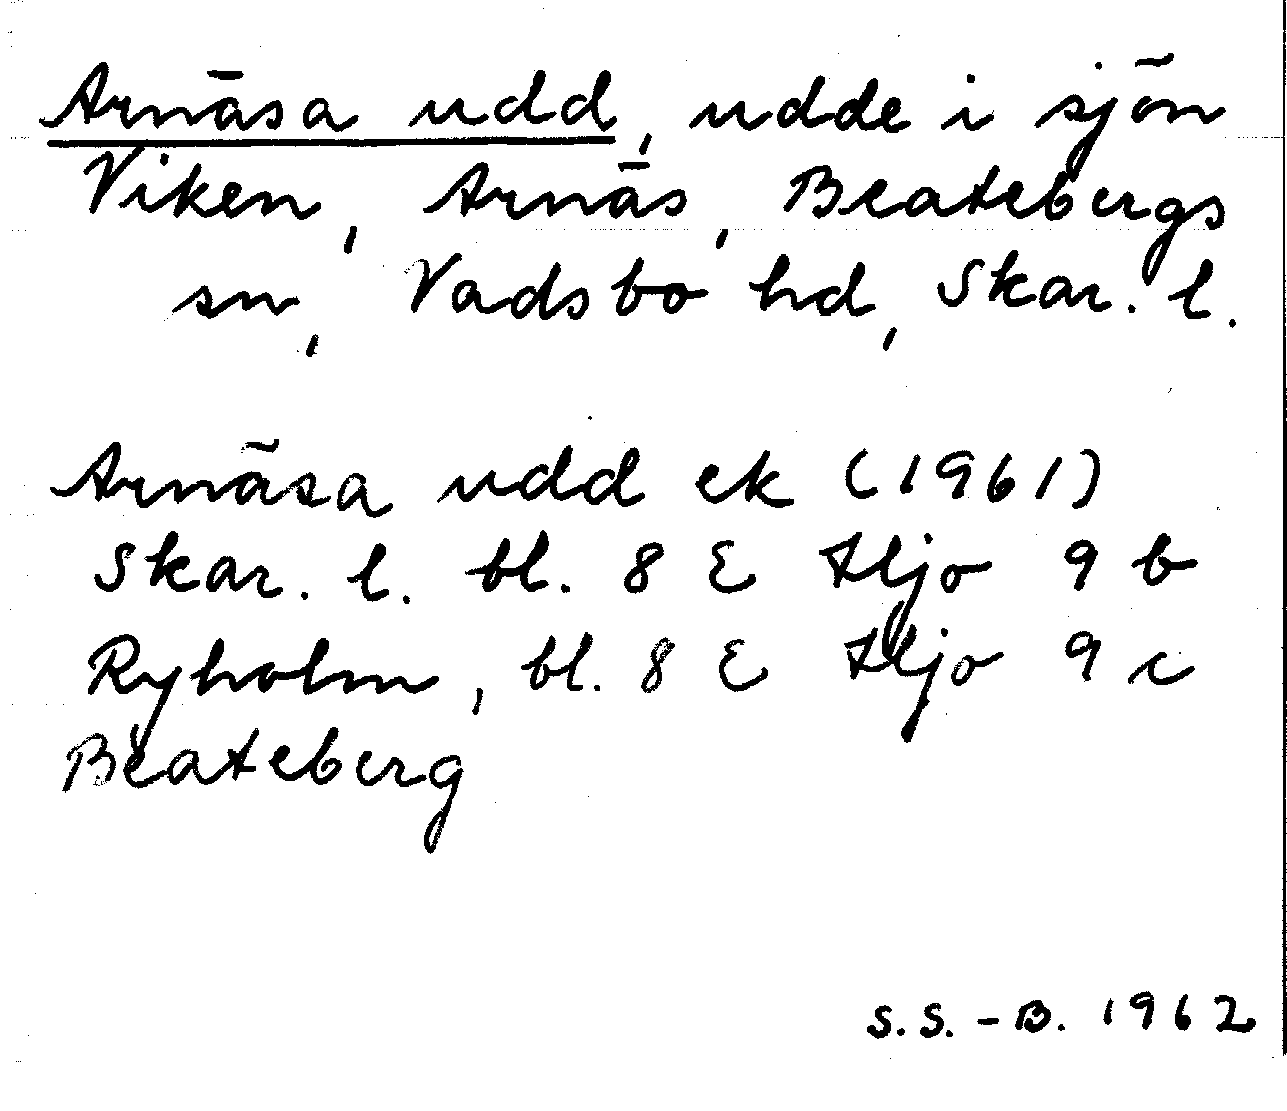 Arnäsa udd, udde i sjön
Viken, Arnäs, Beatebergs
sn, Vadsbo hd, Skar. l.
Arnäsa udd ek (1961)
Skar. l. bl. 8 E Hjo 9 b
Ryholm, bl. 8 E Hjo 9 c
Beateberg
S.S.-B. 1962